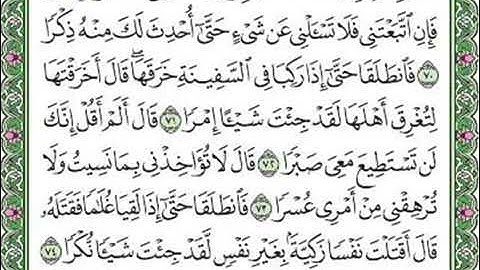 فَإِنِ ٱتَّبَعْتَنِى فَلَا تَسْـَٔلْنِى عَن شَىْءٍ حَتَّىٰٓ أُحْدِثَ لَكَ مِنْهُ ذِكْرًا
٧٠ فَٱنطَلَقَا حَتَّىٰٓ إِذَا رَكِبَا فِى ٱلسَّفِينَةِ خَرَقَهَا ۖ قَالَ أَخَرَقْتَهَا
لِتُغْرِقَ أَهْلَهَا لَقَدْ جِئْتَ شَيْـًٔا إِمْرًا ٧١ قَالَ أَلَمْ أَقُلْ إِنَّكَ
لَن تَسْتَطِيعَ مَعِىَ صَبْرًا ٧٢ قَالَ لَا تُؤَاخِذْنِى بِمَا نَسِيتُ وَلَا
تُرْهِقْنِى مِنْ أَمْرِى عُسْرًا ٧٣ فَٱنطَلَقَا حَتَّىٰٓ إِذَا لَقِيَا غُلَـٰمًا فَقَتَلَهُۥ
قَالَ أَقَتَلْتَ نَفْسًا زَكِيَّةًۢ بِغَيْرِ نَفْسٍ لَّقَدْ جِئْتَ شَيْـًٔا نُّكْرًا ٧٤